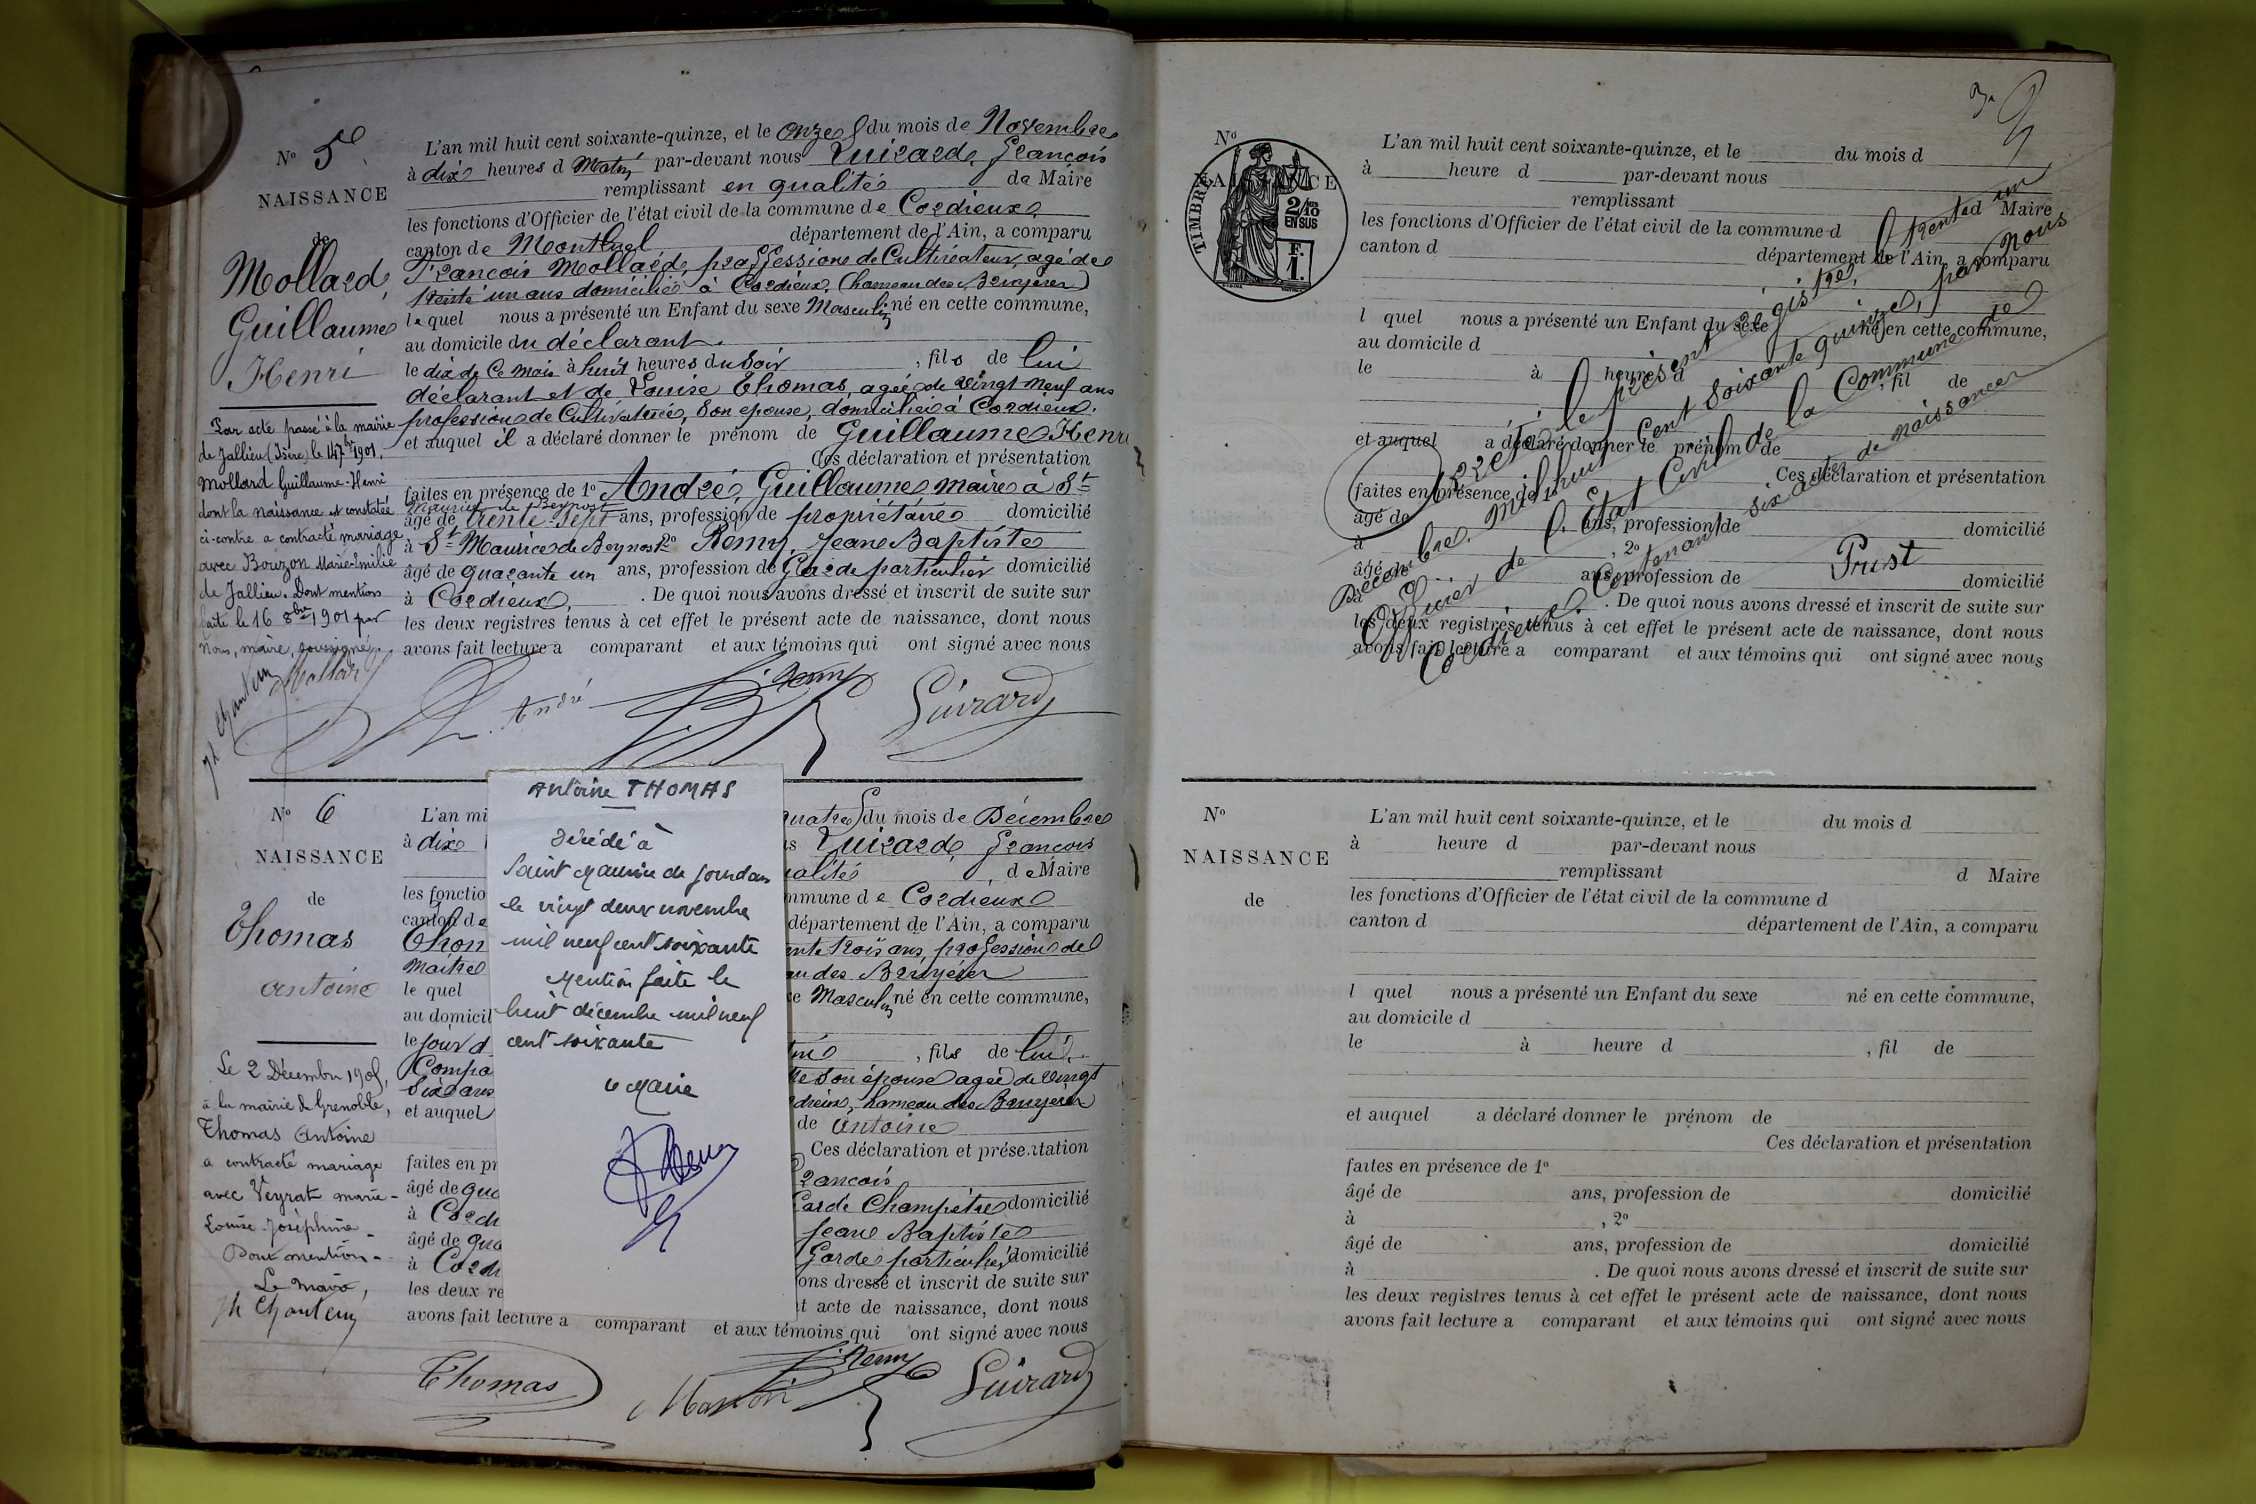 No 5e
NAISSANCE
de
Mollard,
Guillaume
Henri
Par acte passé à la mairie
de Jallieu (Isère) le 14 7bre 1901,
Mollard Guillaume-Henri
dont la naissance est constatée
ci-contre a contracté mariage
avec Bouzon Marie-Emilie
de Jallieu. Dont mention
faite le 16 8bre 1901 par
Nous, maire, soussigné.
L'an mil huit cent soixante-quinze, et le onze du mois de Novembre
à dix heures d Matin par-devant nous Guirard, François
remplissant en qualité de Maire
les fonctions d'Officier de l'état civil de la commune de Cordieux,
canton de Montluel département de l'Ain, a comparu
François Mollard, profession de Cultivateur, agé de
trente un ans domicilié à Cordieux, (hameau des Bruyères)
le quel nous a présenté un Enfant du sexe Masculin né en cette commune,
au domicile du déclarant.
le dix de Ce mois à huit heures du Soir , fils de lui
déclarant et de Louise Thomas, agée de vingt neuf ans
profession de Cultivatrice, Son epouse, domiciliée à Cordieux.
et auquel il a déclaré donner le prénom de Guillaume Henri
Ces déclaration et présentation
faites en présence de 1o André, Guillaume maire à St
Maurice de Beynost
âgé de trente-sept ans, profession de propriétaire domicilié
à St Maurice de Beynost 2o Remy, Jean Baptiste
âgé de quarante un ans, profession de Garde particulier domicilié
à Cordieux, . De quoi nous avons dressé et inscrit de suite sur
les deux registres tenus à cet effet le présent acte de naissance, dont nous
avons fait lecture a comparant et aux témoins qui ont signé avec nous
Mollard
André
Remy
Guirard
No 6
NAISSANCE
de
Thomas
Antoine
Le 2 Décembre 1905,
à la mairie de Grenoble,
Thomas Antoine
a contracté mariage
avec Veyrat Marie-
Louise-Joséphine-
Dont mention-
Le Maire,
L'an mi
à dix
les fonctio
canton de
Thom
Maître
le quel
au domicil
le jour d
Compa
Six ans
et auquel
faites en pr
âgé de qua
à Cordi
âgé de qua
à Cordi
les deux re
avons fait lecture a comparant et aux témoins qui ont signé avec nous
Antoine THOMAS
Décédé à
Saint Maurice de Gourdans
le vingt deux novembre
mil neuf cent soixante
Mention faite le
huit décembre mil neuf
cent soixante
Le Maire
quatre du mois de Décembre
us Guirard, François
ualité de Maire
mmune de Cordieux
département de l'Ain, a comparu
ente trois ans, profession de
au des Bruyères
xe Masculin né en cette commune,
, fils de lui,
te Son épouse agée de vingt
rdieux, hameau des Bruyères
de Antoine
Ces déclaration et présentation
rancois
Garde Champêtre domicilié
Jean Baptiste
Garde particulier domicilié
ons dressé et inscrit de suite sur
nt acte de naissance, dont nous
Thomas
Remy
Guirard
No
NAISSANCE
TIMBRE
2/10
EN SUS
F.
1.
L'an mil huit cent soixante-quinze, et le du mois d
à heure d par-devant nous
remplissant Maire
les fonctions d'Officier de l'état civil de la commune d
canton d département de l'Ain, a comparu
l quel nous a présenté un Enfant du sexe né en cette commune,
au domicile d
le à heures d , fil de
et auquel a déclaré donner le prénom de
Ces déclaration et présentation
faites en présence de 1o
âgé de ans, profession de domicilié
à , 2o
âgé de ans, profession de domicilié
à . De quoi nous avons dressé et inscrit de suite sur
les deux registres tenus à cet effet le présent acte de naissance, dont nous
avons fait lecture a comparant et aux témoins qui ont signé avec nous
Arrêté le présent registre, le trente un
Décembre, Mil huit cent soixante quinze, par Nous
Officier de l'État Civil de la Commune de
Cordieux. Contenant six actes de naissances
No
NAISSANCE
de
L'an mil huit cent soixante-quinze, et le du mois d
à heure d par-devant nous
remplissant d Maire
les fonctions d'Officier de l'état civil de la commune d
canton d département de l'Ain, a comparu
l quel nous a présenté un Enfant du sexe né en cette commune,
au domicile d
le à heure d , fil de
et auquel a déclaré donner le prénom de
Ces déclaration et présentation
faites en présence de 1o
âgé de ans, profession de domicilié
à , 2o
âgé de ans, profession de domicilié
à . De quoi nous avons dressé et inscrit de suite sur
les deux registres tenus à cet effet le présent acte de naissance, dont nous
avons fait lecture a comparant et aux témoins qui ont signé avec nous